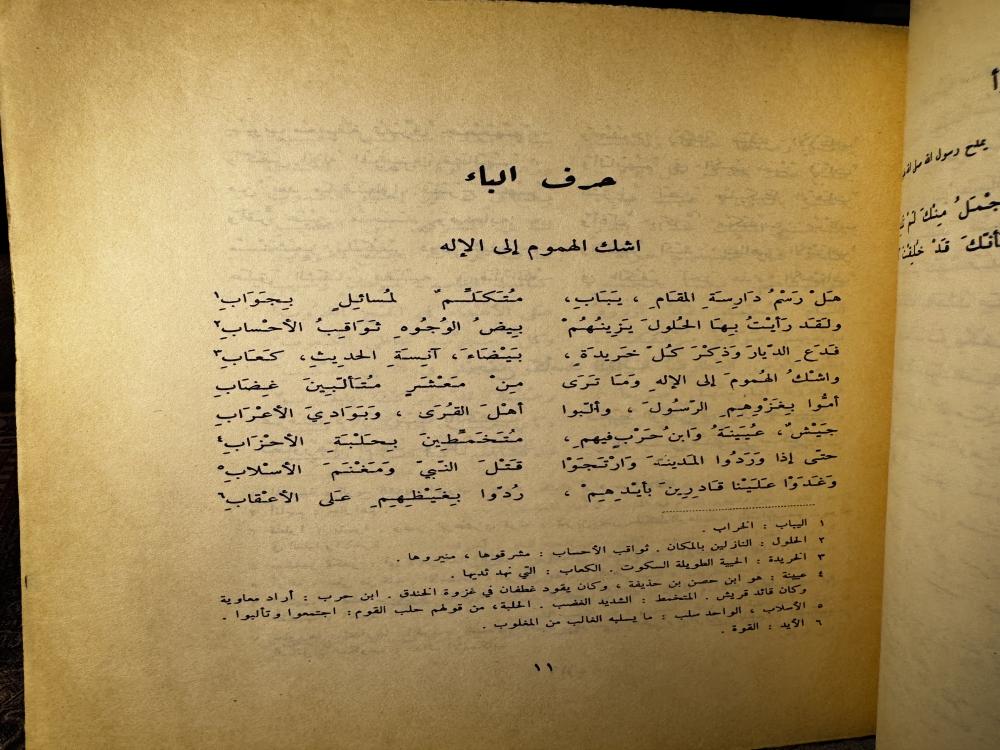 حرف الباء
اشك الهموم إلى الإله
هَلْ رَسْمُ دَارِسَةِ المَقَامِ ، يَبَابِ ، مُتَكَلِّمٌ لمُسَائِلٍ بِجَوَابِ ١
ولَقَد رَأيْتُ بِهَا الحُلولَ يَزِينُهُمْ بِيضُ الوُجُوهِ ثَوَاقِبُ الأحْسابِ ٢
فَدَعِ الدّيَارَ وَذِكْرَ كُلّ خَرِيدَةٍ ، بَيْضَاءَ ، آنِسَةِ الحديثِ ، كَعَابِ ٣
واشْكُ الهُمومَ إلى الإلهِ وَمَا تَرَى مِنْ مَعْشَرٍ مُتَألِّبِينَ غِضَابِ
أمُّوا بِغَزْوِهِمِ الرّسُولَ ، وألّبوا أهْلَ القُرَى ، وَبَوَادِيَ الأعْرَابِ
جَيْشٌ ، عُيَيْنَةُ وَابنُ حَرْبٍ فيهِم ، مُتَخَمِّطِينَ بِحَلْبَةِ الأحْزَابِ ٤
حتّى إذا وَرَدُوا المَدينةَ وَارْتَجَوْا قَتْلَ النّبيّ وَمَغْنَمَ الأسْلابِ ٥
وَغَدَوْا عَلَيْنَا قَادِرِينَ بأيْدِهِمْ ، رُدّوا بِغَيْظِهِمِ عَلى الأعْقابِ ٦
١ اليباب : الخراب .
٢ الحلول : النازلين بالمكان . ثواقب الأحساب : مشرقوها ، منيروها .
٣ الخريدة : الحيية الطويلة السكوت . الكعاب : التي نهد ثديها .
٤ عيينة : هو ابن حصن بن حذيفة ، وكان يقود غطفان في غزوة الخندق . ابن حرب : أراد معاوية
وكان قائد قريش . المتخمط : الشديد الغضب . الحلبة ، من قولهم حلب القوم : اجتمعوا وتألبوا .
٥ الأسلاب ، الواحد سلب : ما يسلبه الغالب من المغلوب .
٦ الأيد : القوة .
١١
يمدح رسول الله
مِنْكَ لَمْ
قَدْ